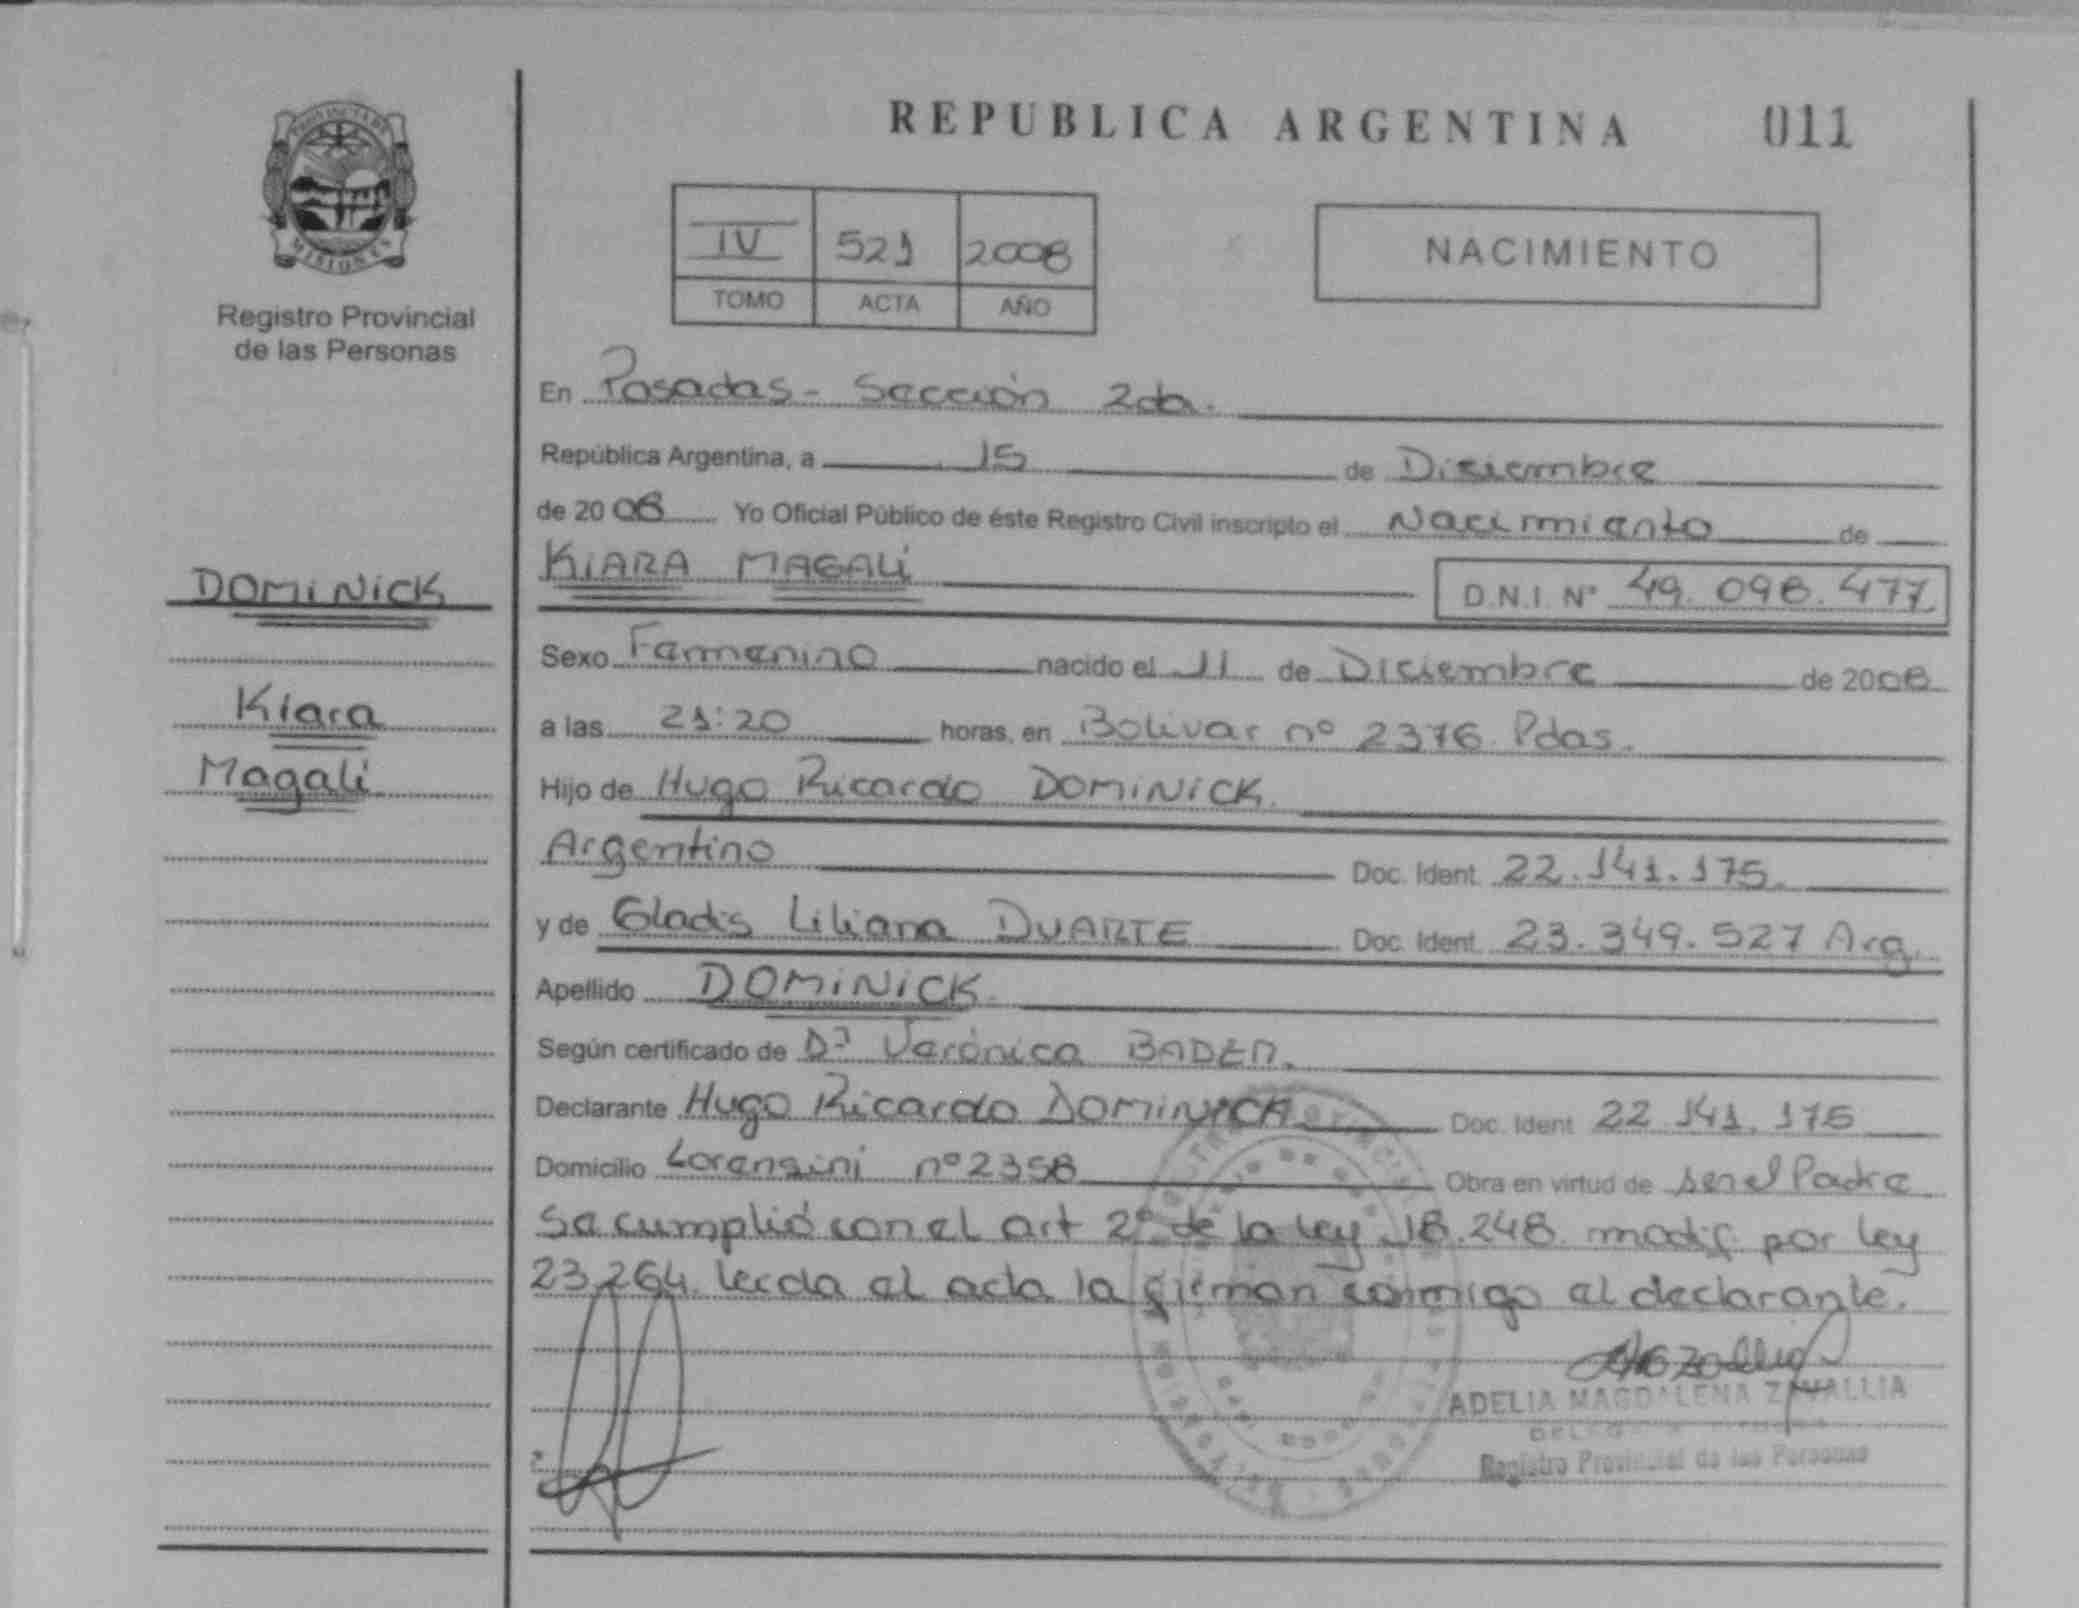 PROVINCIA DE
MISIONES
Registro Provincial
de las Personas
DOMINICK
Kiara
Magali
REPUBLICA ARGENTINA 011
IV 521 2008
TOMO ACTA AÑO
NACIMIENTO
En Posadas - Sección 2da.
República Argentina, a 15 de Disiembre
de 2008 Yo Oficial Público de éste Registro Civil inscripto el Nacimiento de
KIARA MAGALÍ D.N.I. Nº 49.098.477
Sexo Femenino nacido el 11 de Diciembre de 2008
a las 21:20 horas, en Bolivar nº 2376 Pdas.
Hijo de Hugo Ricardo DOMINICK.
Argentino Doc. Ident. 22.141.175.
y de Gladis Liliana DUARTE Doc. Ident. 23.349.527 Arg.
Apellido DOMINICK.
Según certificado de Dra Verónica BADER.
Declarante Hugo Ricardo DOMINICK Doc. Ident 22.141.175
Domicilio Lorensini nº 2358 Obra en virtud de ser el Padre
Se cumplió con el art 2º de la ley 18.248 modif por ley
23.264. Leida el acta la firman conmigo el declarante.
ADELIA MAGDALENA ZAVALLIA
Registro Provincial de las Personas